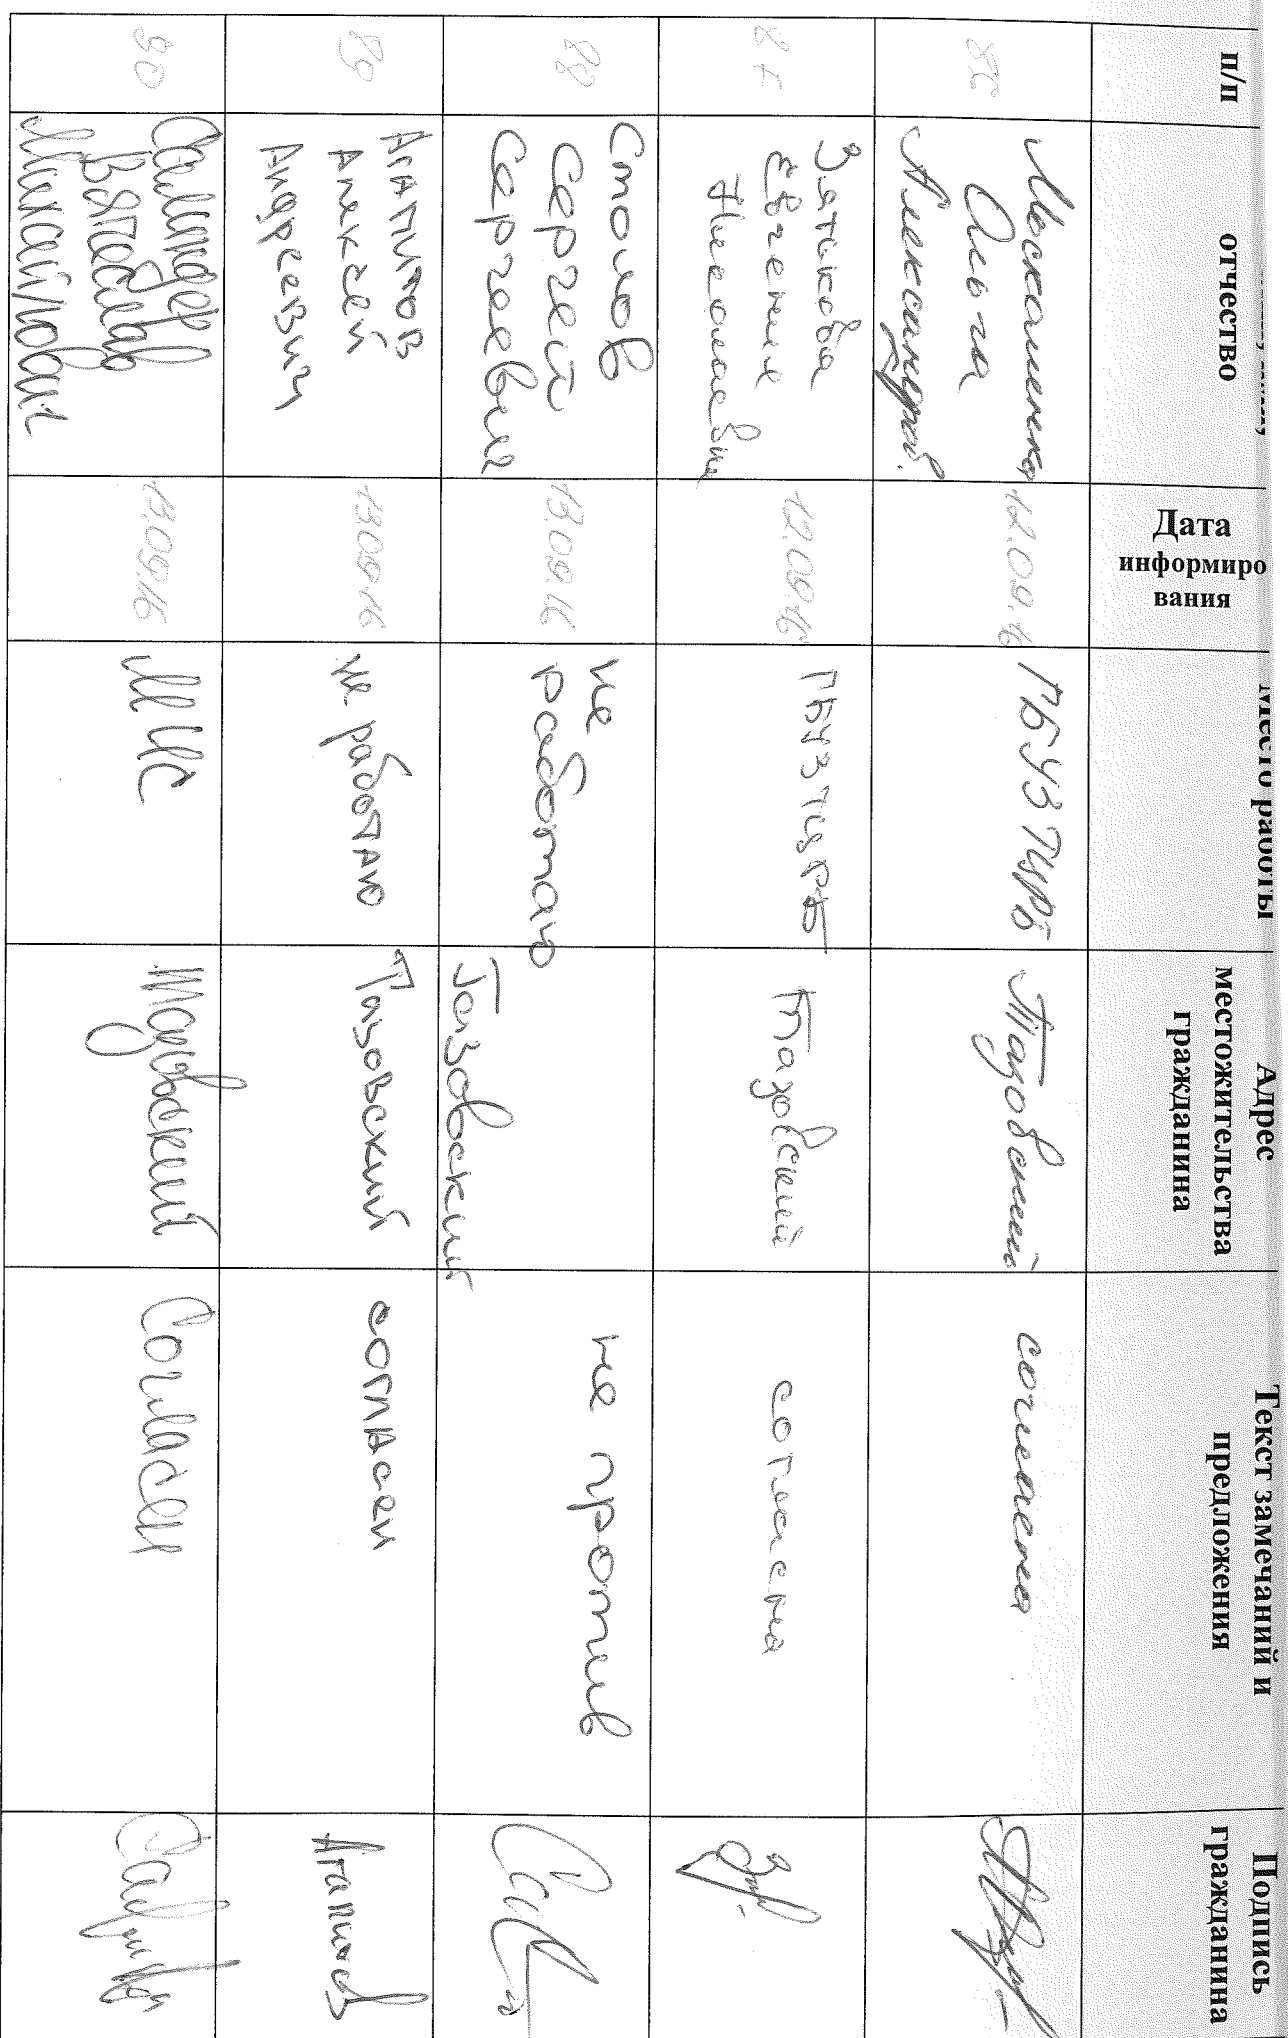 п/п
отчество
Дата
информиро
вания
Место работы
Адрес
местожительства
гражданина
Текст замечаний и
предложения
Подпись
гражданина
86
Ольга
Александров.
12.09.16
ГБУЗ ТЦРБ
Тазовский
согласна
87
Зятькова
Евгения
Николаевна
12.09.16
ГБУЗ ТЦРБ
Тазовский
согласна
88
Столов
Сергей
Сергеевич
13.09.16
не
работаю
Тазовский
не против
89
Агапитов
Алексей
Андреевич
13.09.16
не работаю
Тазовский
согласен
Агапитов
90
Вячеслав
13.09.16
Тазовский
Согласен